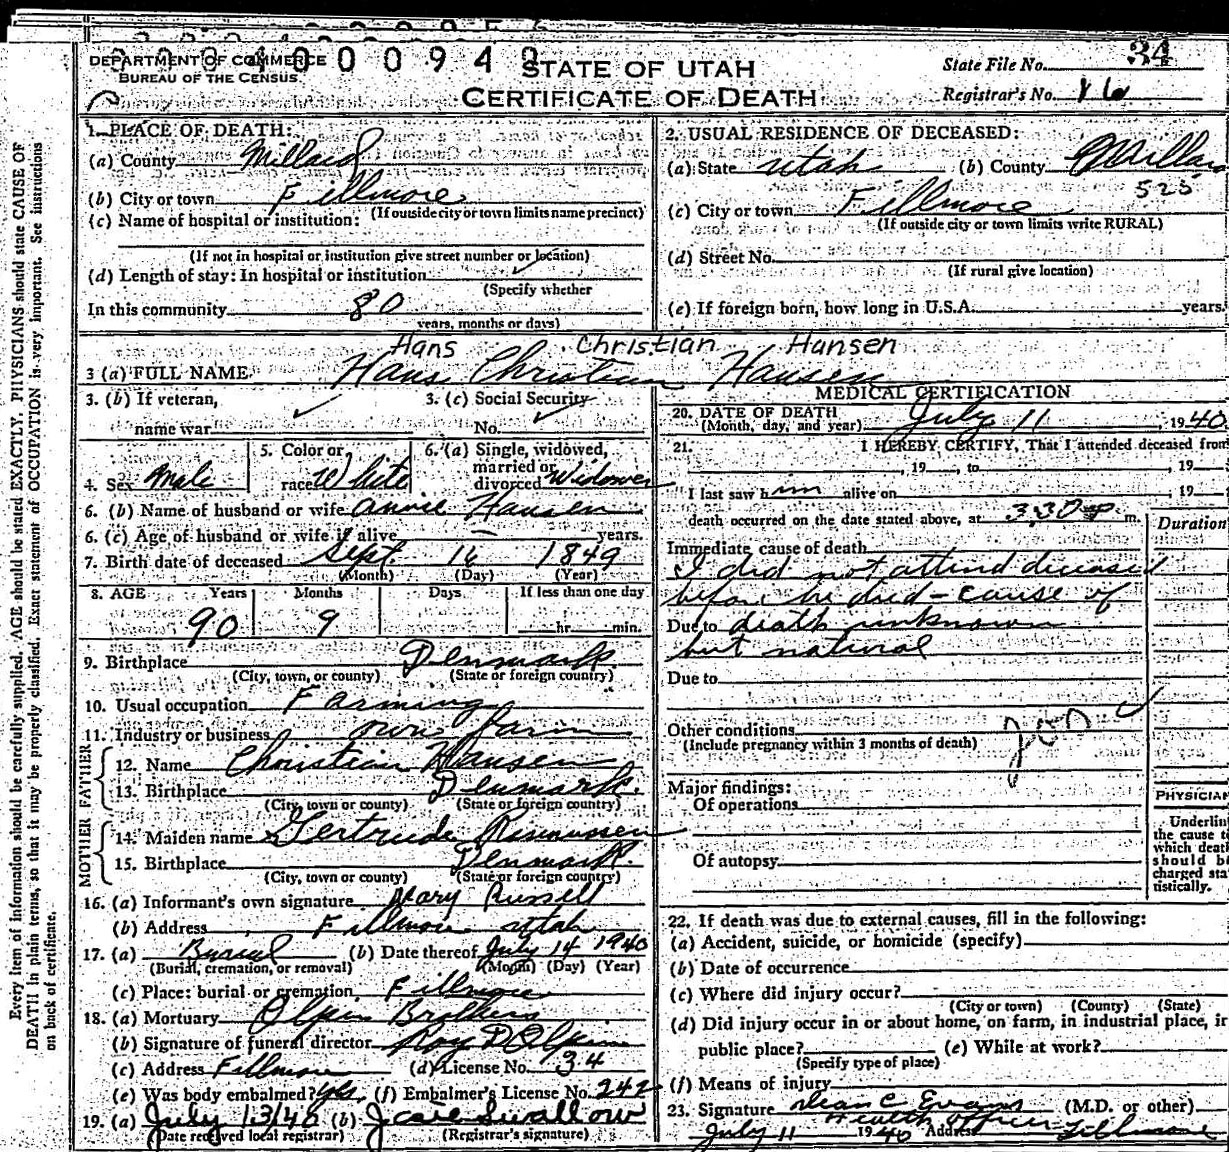 DEPARTMENT OF COMMERCE
BUREAU OF THE CENSUS
STATE OF UTAH
CERTIFICATE OF DEATH
State File No. 34
Registrar's No. 16
1. PLACE OF DEATH:
(a) County Millard
(b) City or town Fillmore
(If outside city or town limits name precinct)
(c) Name of hospital or institution:
(If not in hospital or institution give street number or location)
(d) Length of stay: In hospital or institution
(Specify whether
In this community 80
years, months or days)
2. USUAL RESIDENCE OF DECEASED:
(a) State Utah (b) County Millard
525
(c) City or town Fillmore
(If outside city or town limits write RURAL)
(d) Street No.
(If rural give location)
(e) If foreign born, how long in U.S.A. years.
Hans Christian Hansen
3 (a) FULL NAME Hans Christian Hansen
3. (b) If veteran, 3. (c) Social Security
name war No.
4. Sex Male
5. Color or race White
6. (a) Single, widowed, married or divorced Widower
6. (b) Name of husband or wife Annie Hansen
6. (c) Age of husband or wife if alive — years.
7. Birth date of deceased Sept. 16 1849
(Month) (Day) (Year)
8. AGE Years Months Days If less than one day
90 9 hr. min.
9. Birthplace Denmark
(City, town, or county) (State or foreign country)
10. Usual occupation Farming
11. Industry or business own farm
FATHER
12. Name Christian Hansen
13. Birthplace Denmark.
(City, town or county) (State or foreign country)
MOTHER
14. Maiden name Gertrude Rasmussen
15. Birthplace Denmark.
(City, town or county) (State or foreign country)
16. (a) Informant's own signature Mary Russell
(b) Address Fillmore Utah
17. (a) Burial (b) Date thereof July 14 1940
(Burial, cremation, or removal) (Month) (Day) (Year)
(c) Place: burial or cremation Fillmore
18. (a) Mortuary Olpin Brothers
(b) Signature of funeral director Roy D Olpin
(c) Address Fillmore (d) License No. 34
(e) Was body embalmed? yes. (f) Embalmer's License No. 242
19. (a) July 13/40 (b) Swallow
(Date received local registrar) (Registrar's signature)
MEDICAL CERTIFICATION
20. DATE OF DEATH July 11, 1940
(Month, day, and year)
21. I HEREBY CERTIFY, That I attended deceased from
, 19 , to , 19
I last saw him alive on , 19
death occurred on the date stated above, at 3:30 P m.
Duration
Immediate cause of death
I did not attend diceased
before he died - cause of
Due to death unknown
but natural
Due to
Other conditions
(Include pregnancy within 3 months of death)
200
Major findings:
Of operations
Of autopsy
PHYSICIAN
Underlin
the cause t
which deat
should b
charged sta
tistically.
22. If death was due to external causes, fill in the following:
(a) Accident, suicide, or homicide (specify)
(b) Date of occurrence
(c) Where did injury occur?
(City or town) (County) (State)
(d) Did injury occur in or about home, on farm, in industrial place, in
public place? (e) While at work?
(Specify type of place)
(f) Means of injury
23. Signature Dean C Evans (M.D. or other)
Health officer
July 11 1940 Address Fillmore
Every item of information should be carefully supplied. AGE should be stated EXACTLY. PHYSICIANS should state CAUSE OF
DEATH in plain terms, so that it may be properly classified. Exact statement of OCCUPATION is very important. See instructions
on back of certificate.